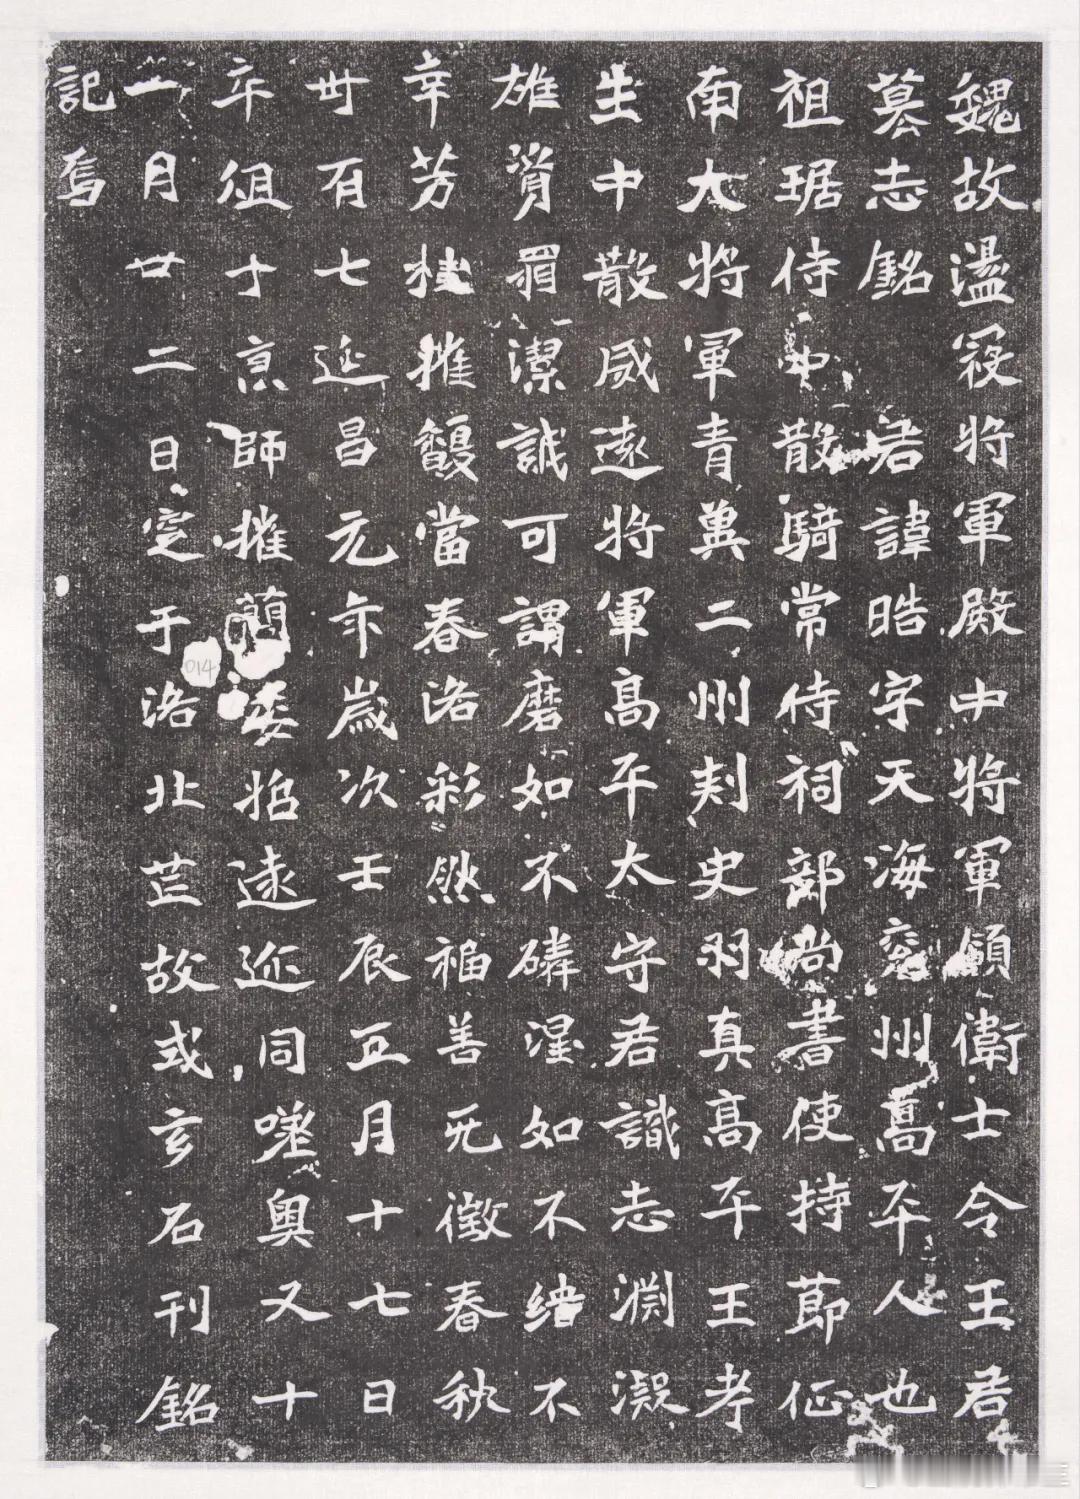 魏故盪寇將軍殿中將軍領衛士令王君
墓志銘 君諱晧字天海兖州高平人也
祖琚侍中散騎常侍祠部尚書使持節征
南大將軍青冀二州刾史羽真高平王考
生中散威遠將軍高平太守君識志淵凝
雄資霜潔誠可謂磨如不磷湼如不緇不
幸芳桂摧馥當春落彩然福善无徵春秋
卅有七延昌元年歲次壬辰正月十七日
卒徂于京師摧蘭委招遠迩同嗟奥又十
一月廿二日窆于洛北芒故式玄石刊銘
記焉
014